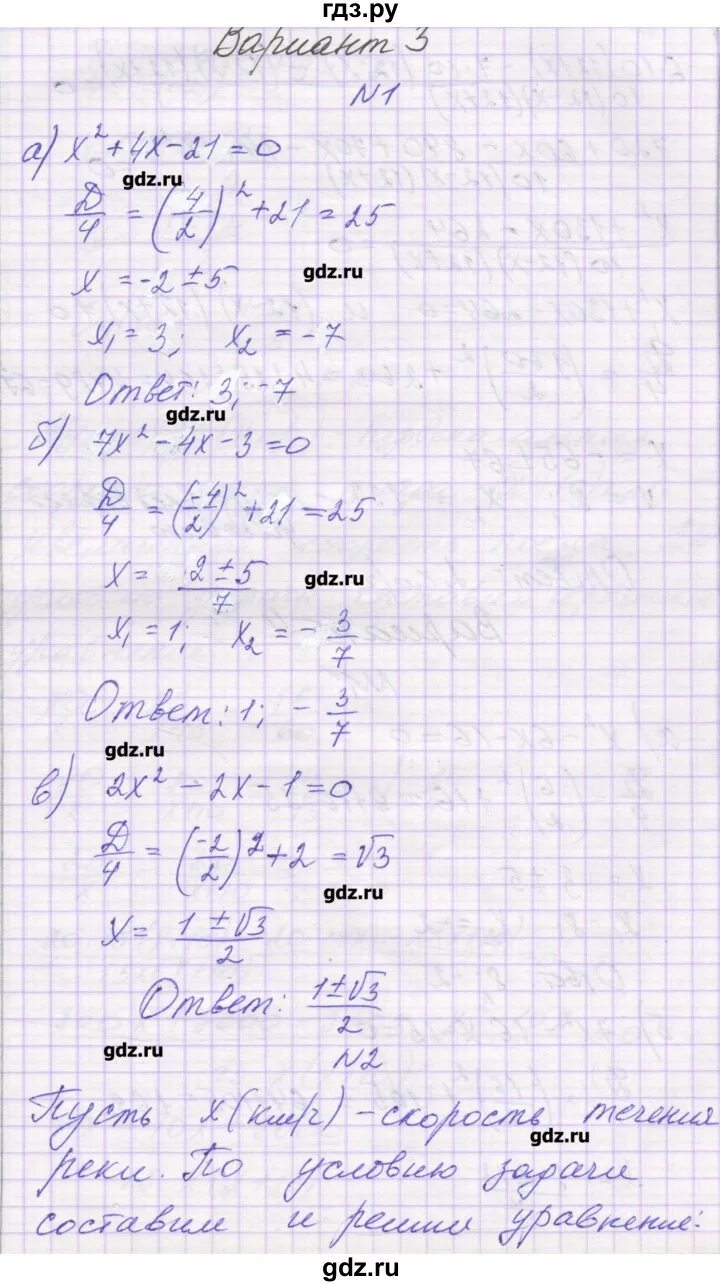 гдз.ру
Вариант 3
N1
а) x² + 4x - 21 = 0
gdz.ru
Д/4 = (4/2)² + 21 = 25
x = -2 ± 5
gdz.ru
x₁ = 3; x₂ = -7
Ответ: 3; -7
gdz.ru
б) 7x² - 4x - 3 = 0
Д/4 = (-4/2)² + 21 = 25
x = (2 ± 5)/7
gdz.ru
x₁ = 1; x₂ = -3/7
Ответ: 1; -3/7
gdz.ru
в) 2x² - 2x - 1 = 0
Д/4 = (-2/2)² + 2 = √3
gdz.ru
x = (1 ± √3)/2
Ответ: (1 ± √3)/2
gdz.ru
N2
Пусть x (км/ч) - скорость течения
gdz.ru
реки. По условию задачи
составим и решим уравнение:
gdz.ru